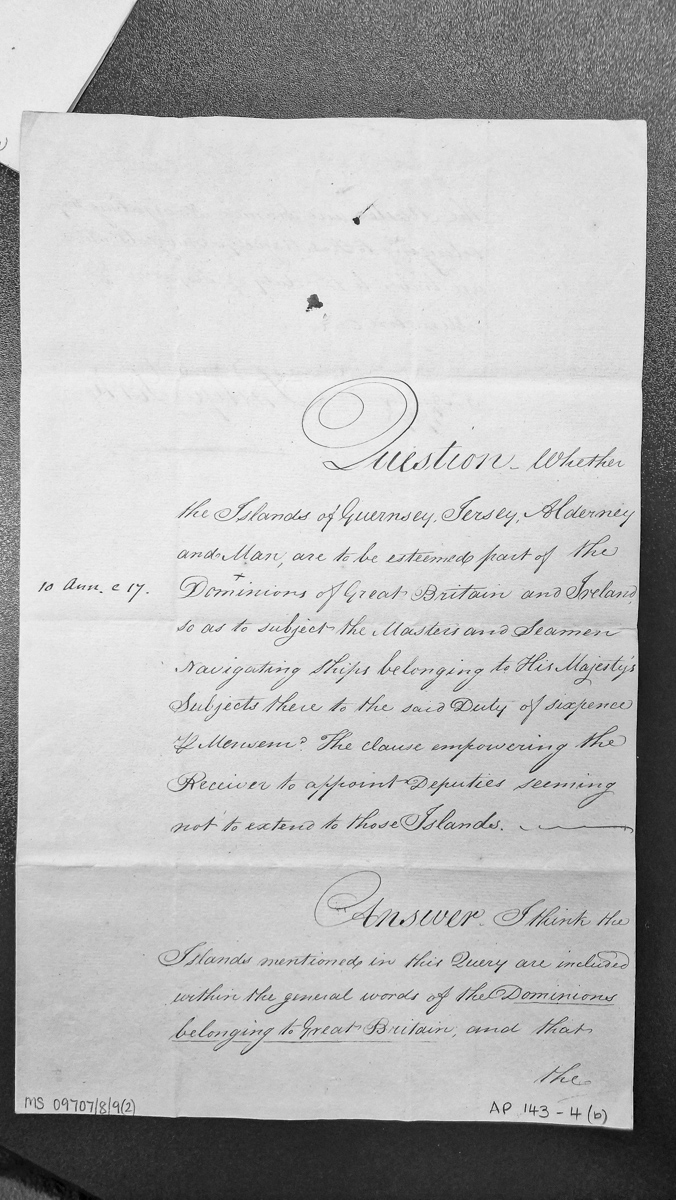 Question – Whether
the Islands of Guernsey, Jersey, Alderney
and Man, are to be esteemed part of the
10 Ann. c 17. Dominions of Great Britain and Ireland,
so as to subject the Masters and Seamen
Navigating Ships belonging to His Majesty's
Subjects there to the said Duty of sixpence
⅌ Mensem? The clause empowering the
Receiver to appoint Deputies seeming
not to extend to those Islands.
Answer. I think the
Islands mentioned in this Query are included
within the general words of the Dominions
belonging to Great Britain, and that
the
MS 09707/8/9(2)
AP 143-4(b)